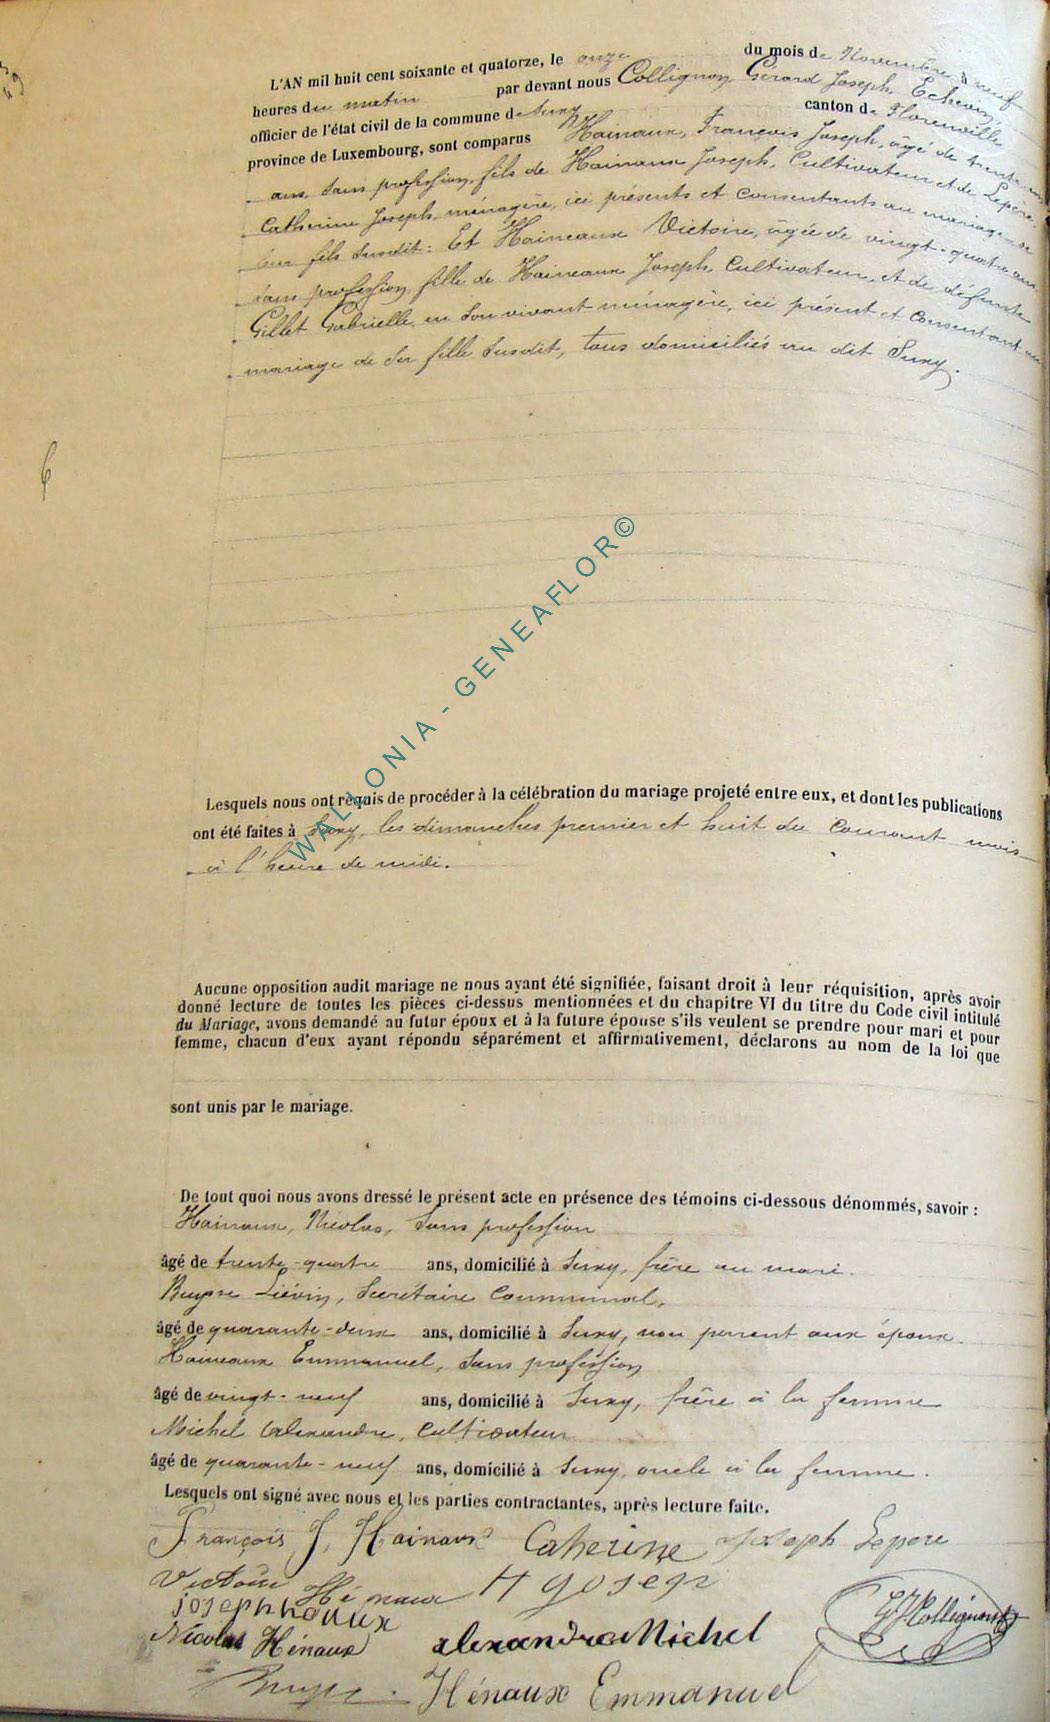 L'AN mil huit cent soixante et quatorze, le onze du mois de Novembre, à neuf
heures du matin par devant nous Collignon, Gérard Joseph, Echevin,
officier de l'état civil de la commune de Suxy canton de Florenville
province de Luxembourg, sont comparus Hainaux, François Joseph, âgé de trente
ans, sans profession, fils de Hainaux Joseph, Cultivateur et de Lepère
Catherine Joseph, ménagère, ici présents et consentants au mariage de
leur fils susdit: Et Haineaux Victoire, âgée de vingt-quatre ans
sans profession, fille de Haineaux Joseph, Cultivateur, et de défunte
Gillet Gabrielle, en son vivant ménagère, ici présent et consentant au
mariage de sa fille susdit, tous domiciliés au dit Suxy.
6
WALLONIA - GENEAFLOR©
Lesquels nous ont requis de procéder à la célébration du mariage projeté entre eux, et dont les publications
ont été faites à Suxy, les dimanches premier et huit du courant mois
à l'heure de midi.
Aucune opposition audit mariage ne nous ayant été signifiée, faisant droit à leur réquisition, après avoir
donné lecture de toutes les pièces ci-dessus mentionnées et du chapitre VI du titre du Code civil intitulé
du Mariage, avons demandé au futur époux et à la future épouse s'ils veulent se prendre pour mari et pour
femme, chacun d'eux ayant répondu séparément et affirmativement, déclarons au nom de la loi que
sont unis par le mariage.
De tout quoi nous avons dressé le présent acte en présence des témoins ci-dessous dénommés, savoir :
Hainaux, Nicolas, sans profession
âgé de trente-quatre ans, domicilié à Suxy, frère au mari.
Buysse Liévin, Secrétaire Communal,
âgé de quarante-deux ans, domicilié à Suxy, non parent aux époux.
Haineaux Emmanuel, sans profession
âgé de vingt-neuf ans, domicilié à Suxy, frère à la femme
Michel Alexandre, Cultivateur
âgé de quarante-neuf ans, domicilié à Suxy, oncle à la femme.
Lesquels ont signé avec nous et les parties contractantes, après lecture faite.
François J. Hainaux Catherine Joseph Lepere
Victoire Hénaux H Josep
joseph G J Collignon
Nicolas Hénaux alexandre Michel
Buysse. Hénaux Emmanuel